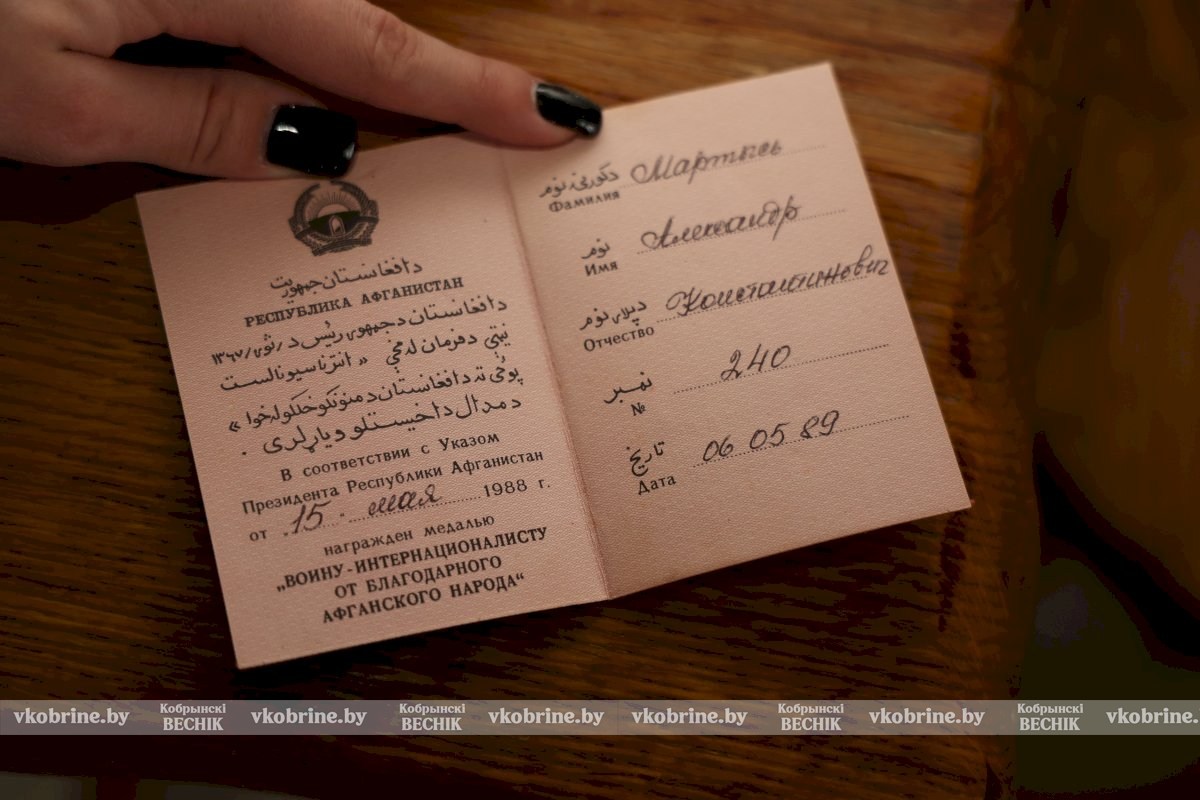 دافغانستان جمهوریت
РЕСПУБЛИКА АФГАНИСТАН
دافغانستان دجمهوری رئیس د / ثوی / ۱۳۶۷
نیټې دفرمان له مخې « انترناسیونالست
پوځی ته دافغانستان دمنونکو خلکو له خوا »
دمدال داخیستلو ویاړلری .
В соответствии с Указом
Президента Республики Афганистан
от 15 мая 1988 г.
награжден медалью
„ВОИНУ-ИНТЕРНАЦИОНАЛИСТУ
ОТ БЛАГОДАРНОГО
АФГАНСКОГО НАРОДА“
دکورنۍ نوم Мартысь
Фамилия
نوم Александр
Имя
دپلار نوم Константинович
Отчество
نمبر 240
№
تاریخ 06 05 89
Дата
vkobrine.by Кобрынскі ВЕСНІК vkobrine.by Кобрынскі ВЕСНІК vkobrine.by vkobrine.by Кобрынскі ВЕСНІК vkobrine.by Кобрынскі ВЕСНІК vkobrine.